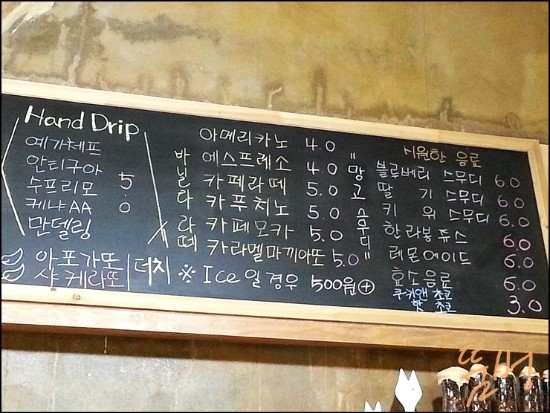 Hand Drip
예가체프
안티구아
수프리모 5
케냐AA 0
만델링
아포가또
샤케라또
더치
바닐라라떼
아메리카노 4.0
에스프레소 4.0
카페라떼 5.0
카푸치노 5.0
카페모카 5.0
카라멜마끼아또 5.0
※ Ice일 경우 500원 +
망고스무디
시원한 음료
블루베리 스무디 6.0
딸기 스무디 6.0
키위 스무디 6.0
한라봉쥬스 6.0
레몬에이드 6.0
효소음료 6.0
쿠키앤 초코
핫 초코 3.0